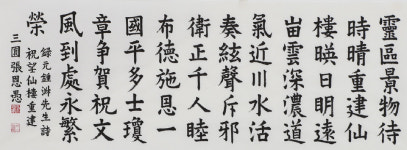 靈區景物待
時晴重建仙
樓暎日明遠
岀雲深濃道
氣近川水活
奏絃聲斥邪
衛正千人睦
布德施恩一
國平多士瓊
章爭賀祝文
風到處永繁
榮
錄元鍾洲先生詩
祝望仙樓重建
三圓張恩惪